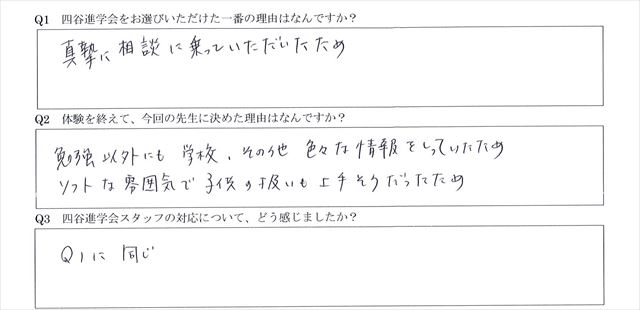 Q1 四谷進学会をお選びいただけた一番の理由はなんですか？
真摯に相談に乗っていただいたため
Q2 体験を終えて、今回の先生に決めた理由はなんですか？
勉強以外にも学校、その他色々な情報をしっていたため
ソフトな雰囲気で子供の扱いも上手そうだったため
Q3 四谷進学会スタッフの対応について、どう感じましたか？
Q1に同じ